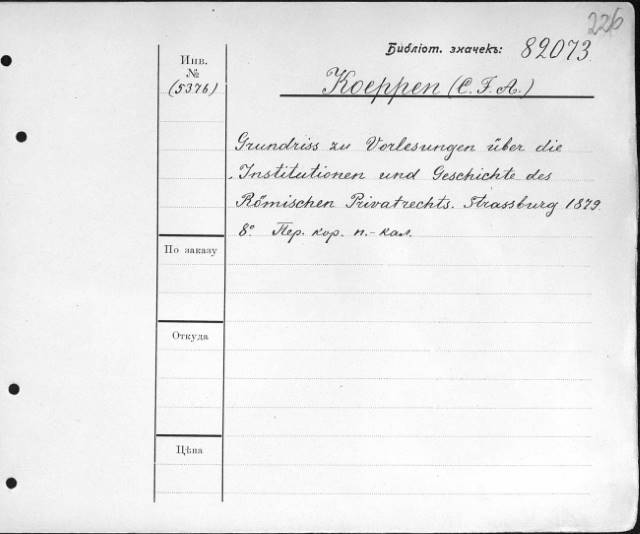 226
Библіот. значекъ: 82073
Инв.
№
(5376)
Koeppen (C. F. A.)
Grundriss zu Vorlesungen über die
Institutionen und Geschichte des
Römischen Privatrechts. Strassburg 1879.
8° Пер. кор. п.-кал.
По заказу
Откуда
Цѣна